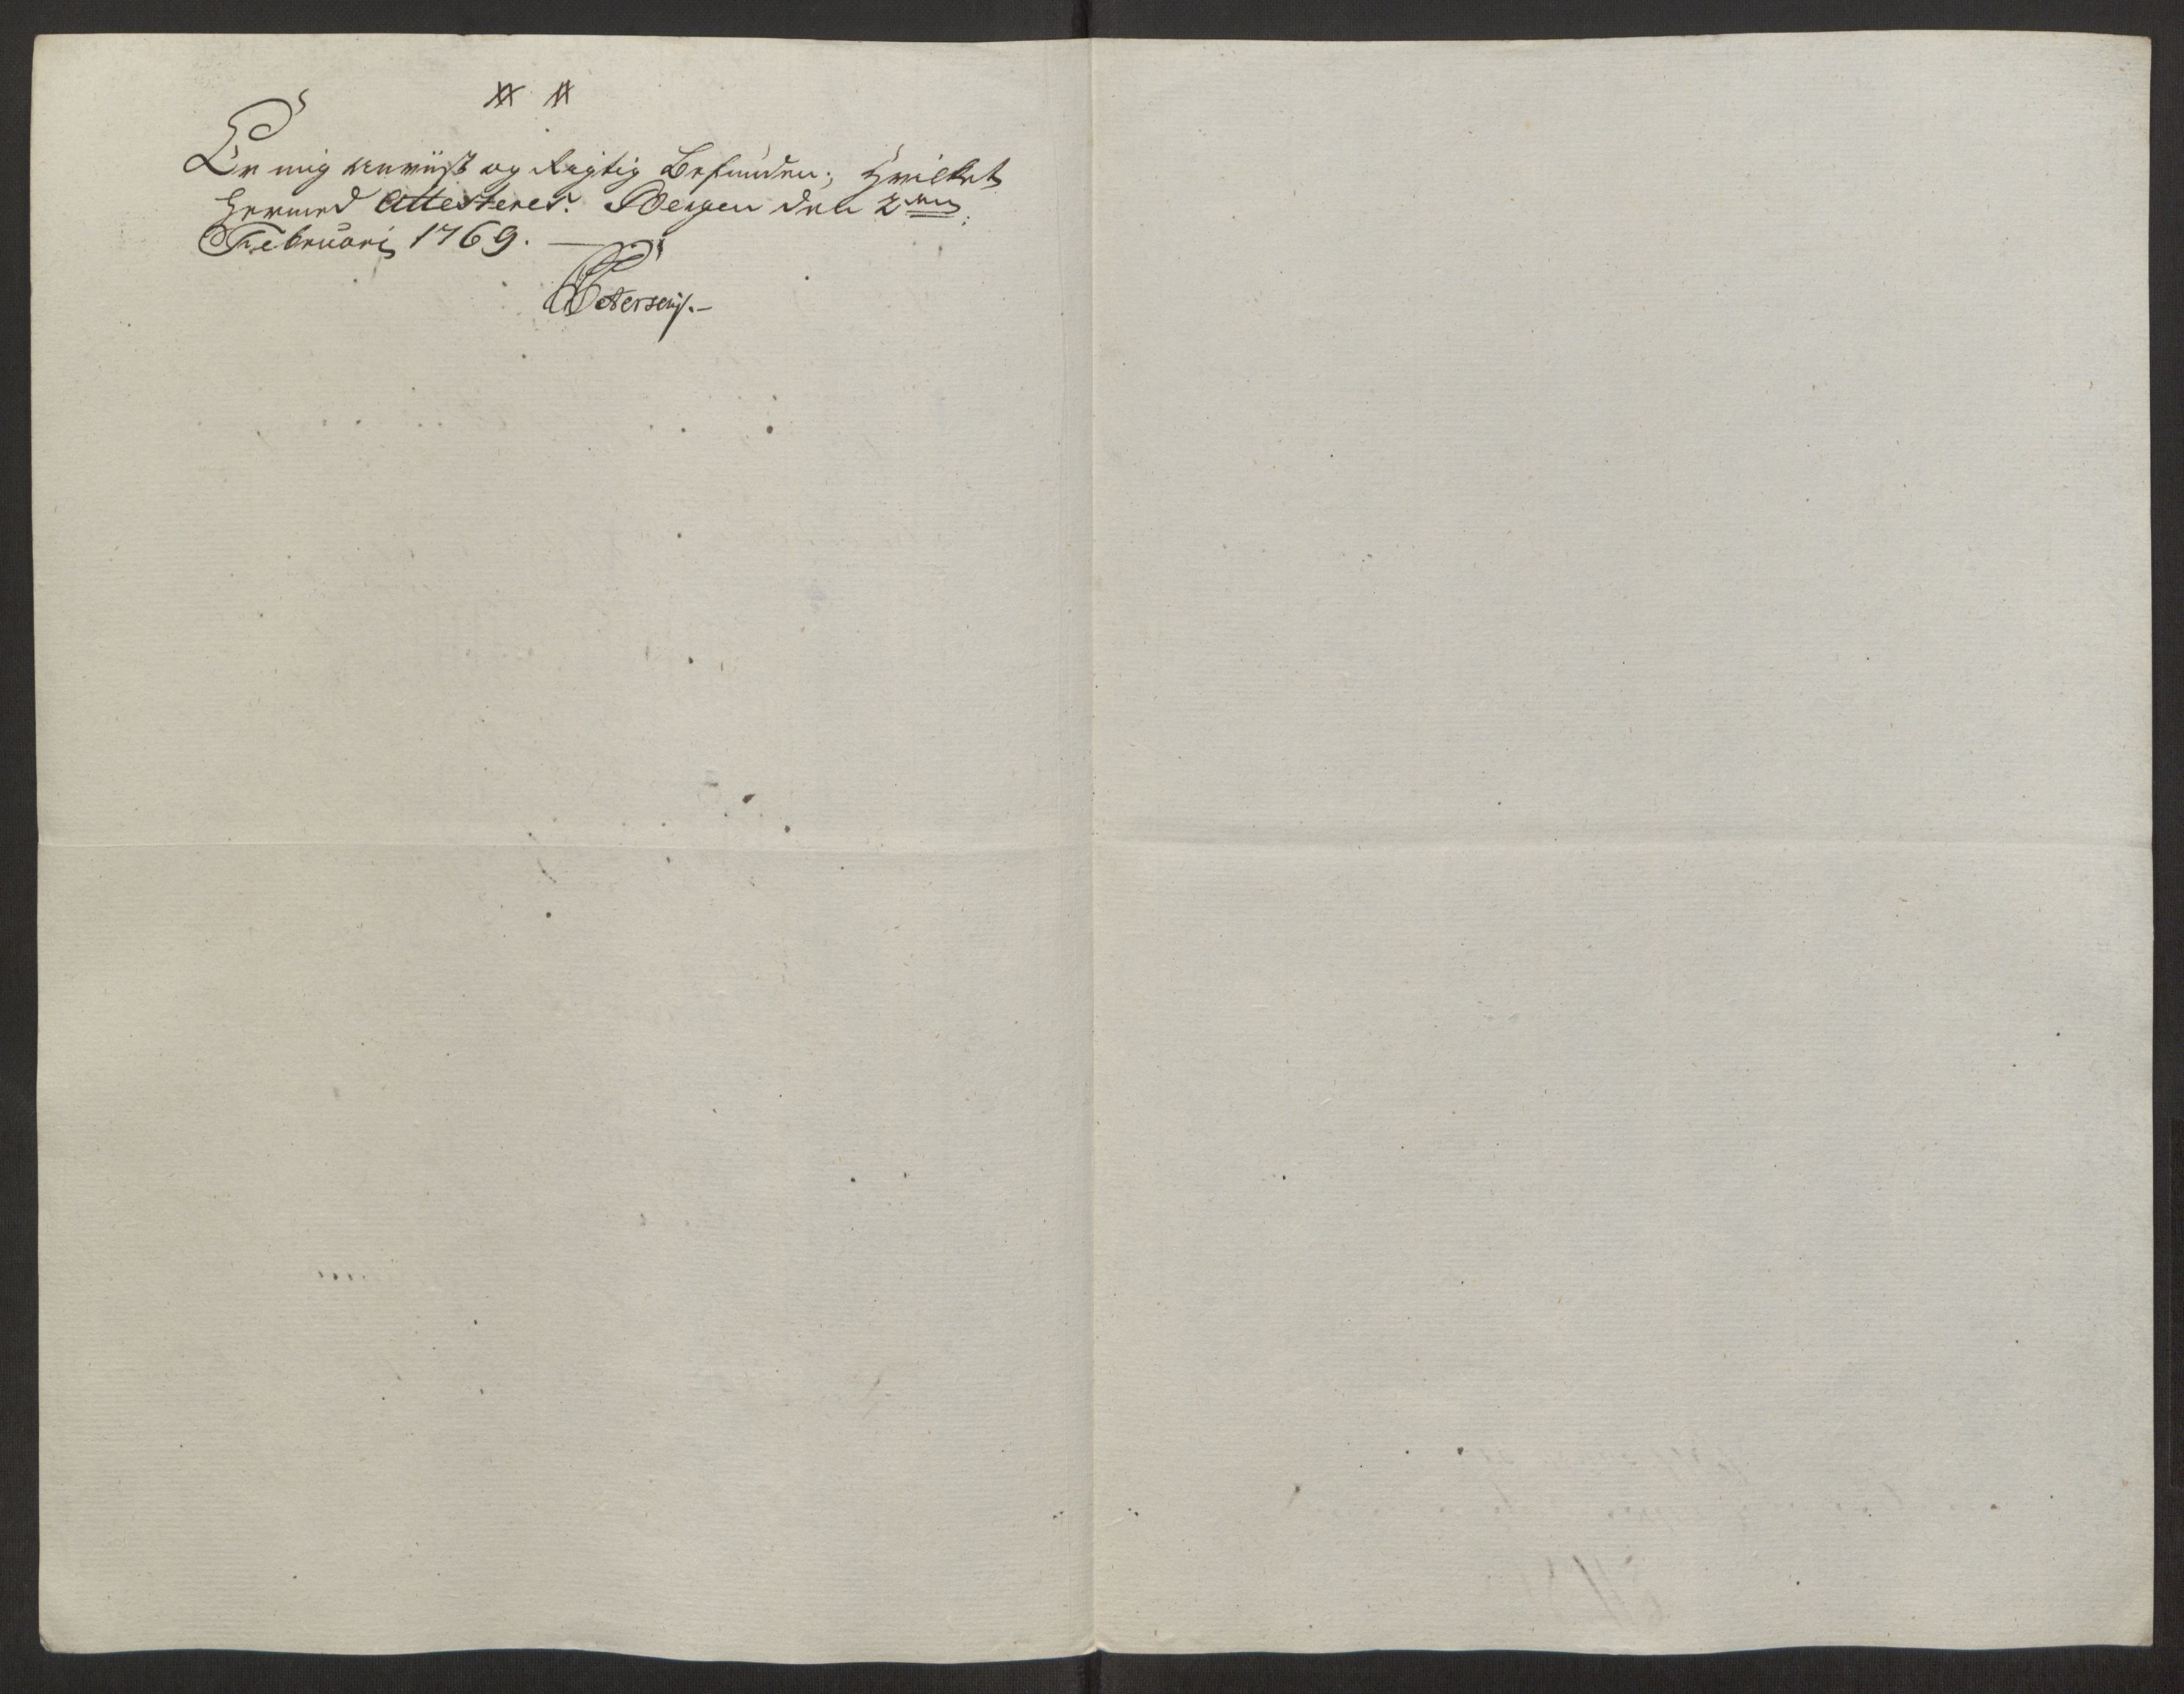 Er mig anviist og Rigtig Befunden; Hvilket
Hermed Attesteres. Bergen den 2den
Februari 1769.
Petersen.